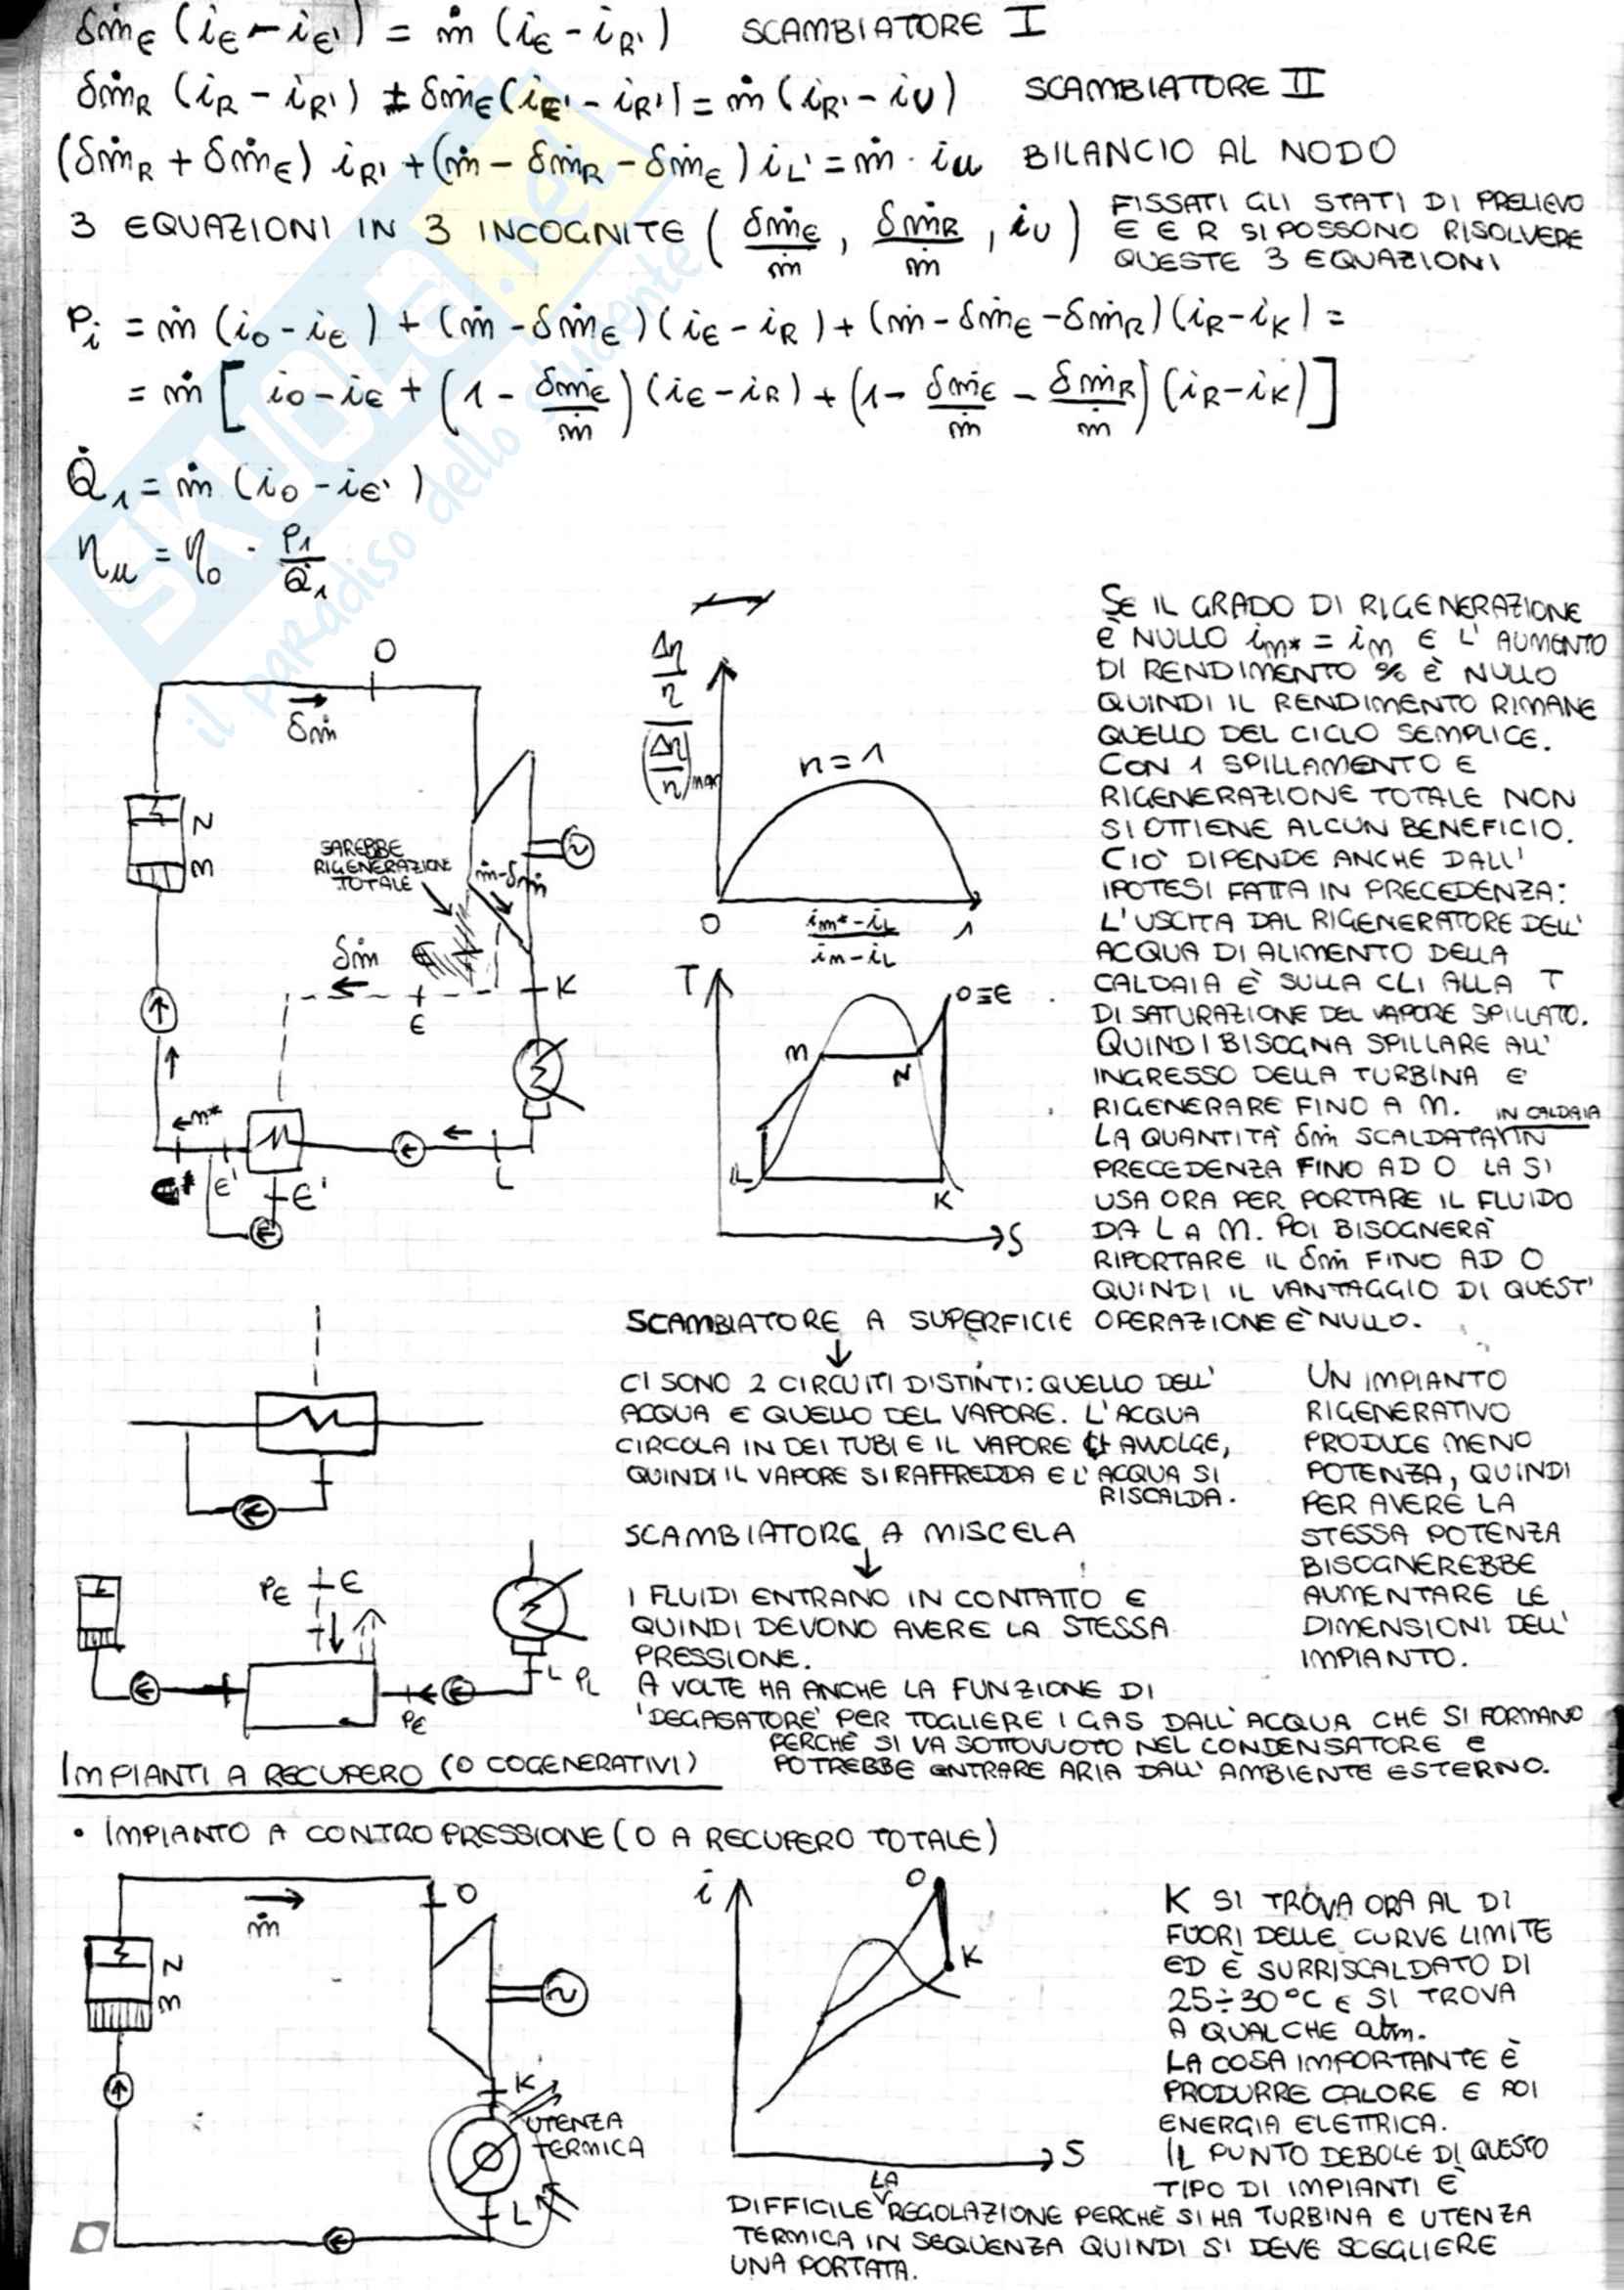 δṁE (iE - iE') = ṁ (iE - iR') SCAMBIATORE I
δṁR (iR - iR') ± δṁE (iE' - iR') = ṁ (iR' - iU) SCAMBIATORE II
(δṁR + δṁE) iR' + (ṁ - δṁR - δṁE) iL' = ṁ · iu BILANCIO AL NODO
3 EQUAZIONI IN 3 INCOGNITE (δṁE/ṁ, δṁR/ṁ, iU)
FISSATI GLI STATI DI PRELIEVO
E E R SI POSSONO RISOLVERE
QUESTE 3 EQUAZIONI
Pi = ṁ (iO - iE) + (ṁ - δṁE)(iE - iR) + (ṁ - δṁE - δṁR)(iR - iK) =
= ṁ [iO - iE + (1 - δṁE/ṁ)(iE - iR) + (1 - δṁE/ṁ - δṁR/ṁ)(iR - iK)]
Q̇1 = ṁ (iO - iE')
ηu = ηo · P1/Q̇1
SKUOLA.net
il paradiso dello studente
O
δṁ
N
M
SAREBBE
RIGENERAZIONE
TOTALE
ṁ-δṁ
δṁ
E
K
m*
E'
E'
L
Δη/η
(Δη/η)max
n=1
O
im*-iL
im-iL
1
T
O≡E
M
N
L
K
S
SE IL GRADO DI RIGENERAZIONE
È NULLO im* = im E L'AUMENTO
DI RENDIMENTO % È NULLO
QUINDI IL RENDIMENTO RIMANE
QUELLO DEL CICLO SEMPLICE.
CON 1 SPILLAMENTO E
RIGENERAZIONE TOTALE NON
SI OTTIENE ALCUN BENEFICIO.
CIO' DIPENDE ANCHE DALL'
IPOTESI FATTA IN PRECEDENZA:
L'USCITA DAL RIGENERATORE DELL'
ACQUA DI ALIMENTO DELLA
CALDAIA È SULLA CLI ALLA T
DI SATURAZIONE DEL VAPORE SPILLATO.
QUINDI BISOGNA SPILLARE ALL'
INGRESSO DELLA TURBINA E
RIGENERARE FINO A M.
IN CALDAIA
LA QUANTITÀ δṁ SCALDATA IN
PRECEDENZA FINO AD O LA SI
USA ORA PER PORTARE IL FLUIDO
DA L A M. POI BISOGNERÀ
RIPORTARE IL δṁ FINO AD O
QUINDI IL VANTAGGIO DI QUEST'
OPERAZIONE È NULLO.
SCAMBIATORE A SUPERFICIE
CI SONO 2 CIRCUITI DISTINTI: QUELLO DELL'
ACQUA E QUELLO DEL VAPORE. L'ACQUA
CIRCOLA IN DEI TUBI E IL VAPORE LI AVVOLGE,
QUINDI IL VAPORE SI RAFFREDDA E L'ACQUA SI
RISCALDA.
UN IMPIANTO
RIGENERATIVO
PRODUCE MENO
POTENZA, QUINDI
PER AVERE LA
STESSA POTENZA
BISOGNEREBBE
AUMENTARE LE
DIMENSIONI DELL'
IMPIANTO.
SCAMBIATORE A MISCELA
I FLUIDI ENTRANO IN CONTATTO E
QUINDI DEVONO AVERE LA STESSA
PRESSIONE.
A VOLTE HA ANCHE LA FUNZIONE DI
'DEGASATORE' PER TOGLIERE I GAS DALL'ACQUA CHE SI FORMANO
PERCHÈ SI VA SOTTOVUOTO NEL CONDENSATORE E
POTREBBE ENTRARE ARIA DALL'AMBIENTE ESTERNO.
PE
E
L
PL
PE
IMPIANTI A RECUPERO (O COGENERATIVI)
• IMPIANTO A CONTROPRESSIONE (O A RECUPERO TOTALE)
ṁ
O
N
M
K
UTENZA
TERMICA
L
i
O
K
S
K SI TROVA ORA AL DI
FUORI DELLE CURVE LIMITE
ED È SURRISCALDATO DI
25÷30°C E SI TROVA
A QUALCHE atm.
LA COSA IMPORTANTE È
PRODURRE CALORE E POI
ENERGIA ELETTRICA.
IL PUNTO DEBOLE DI QUESTO
TIPO DI IMPIANTI È
LA
DIFFICILE REGOLAZIONE PERCHÈ SI HA TURBINA E UTENZA
TERMICA IN SEQUENZA QUINDI SI DEVE SCEGLIERE
UNA PORTATA.